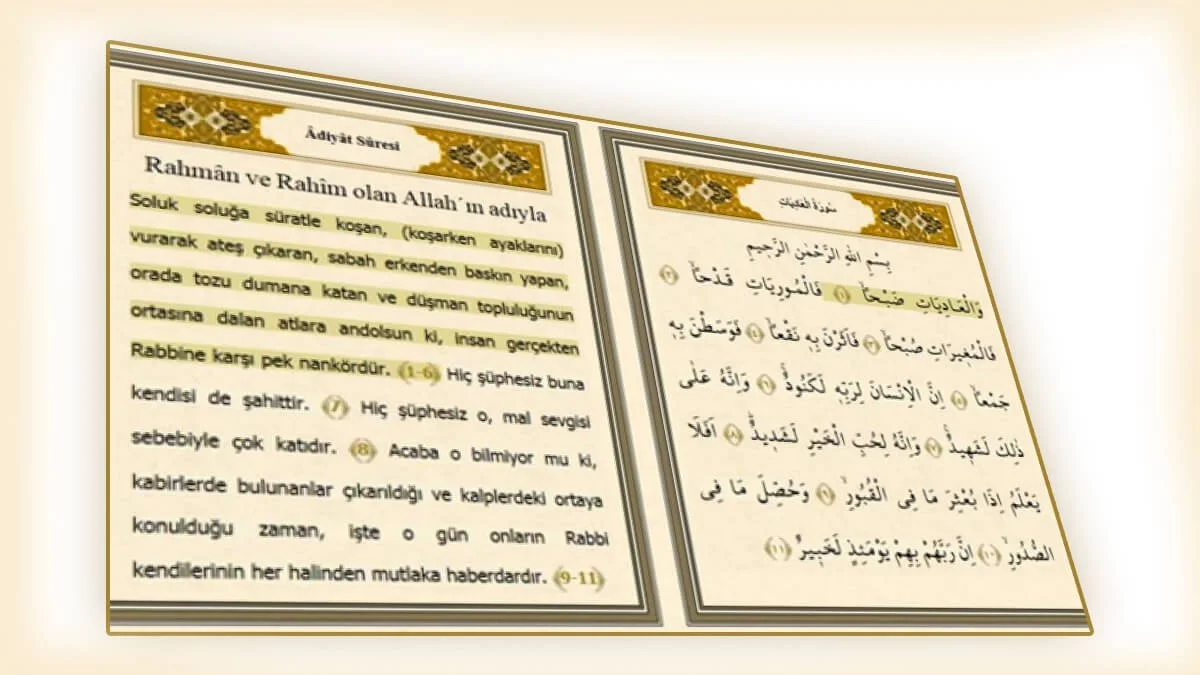 Âdiyât Sûresi
Rahmân ve Rahîm olan Allah´ın adıyla
Soluk soluğa süratle koşan, (koşarken ayaklarını)
vurarak ateş çıkaran, sabah erkenden baskın yapan,
orada tozu dumana katan ve düşman topluluğunun
ortasına dalan atlara andolsun ki, insan gerçekten
Rabbine karşı pek nankördür. (1-6) Hiç şüphesiz buna
kendisi de şahittir. (7) Hiç şüphesiz o, mal sevgisi
sebebiyle çok katıdır. (8) Acaba o bilmiyor mu ki,
kabirlerde bulunanlar çıkarıldığı ve kalplerdeki ortaya
konulduğu zaman, işte o gün onların Rabbi
kendilerinin her halinden mutlaka haberdardır. (9-11)
سُورَةُ الْعَادِيَاتِ
بِسْمِ اللهِ الرَّحْمٰنِ الرَّحِيمِ
وَالْعَادِيَاتِ ضَبْحًاۙ ﴿١﴾ فَالْمُورِيَاتِ قَدْحًاۙ ﴿٢﴾
فَالْمُغِيرَاتِ صُبْحًاۙ ﴿٣﴾ فَاَثَرْنَ بِهٖ نَقْعًاۙ ﴿٤﴾ فَوَسَطْنَ بِهٖ
جَمْعًاۙ ﴿٥﴾ اِنَّ الْاِنْسَانَ لِرَبِّهٖ لَكَنُودٌۚ ﴿٦﴾ وَاِنَّهُ عَلٰى
ذٰلِكَ لَشَهِيدٌۚ ﴿٧﴾ وَاِنَّهُ لِحُبِّ الْخَيْرِ لَشَدِيدٌۜ ﴿٨﴾ اَفَلَا
يَعْلَمُ اِذَا بُعْثِرَ مَا فِى الْقُبُورِۙ ﴿٩﴾ وَحُصِّلَ مَا فِى
الصُّدُورِۙ ﴿١٠﴾ اِنَّ رَبَّهُمْ بِهِمْ يَوْمَئِذٍ لَخَبِيرٌ ﴿١١﴾